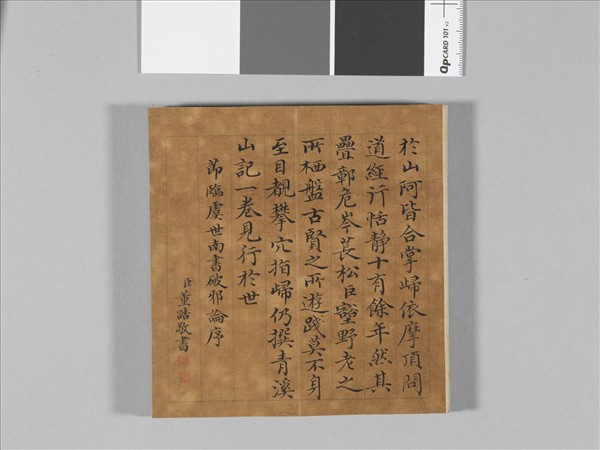 QPCARD 101 v2
於山阿皆合掌歸依摩頂問
道經行恬靜十有餘年然其
疊鄣危岑萇松巨壑野老之
所栖盤古賢之所遊踐莫不身
至目覩攀穴指歸仍撰青溪
山記一卷見行於世
節臨虞世南書破邪論序
臣董誥敬書